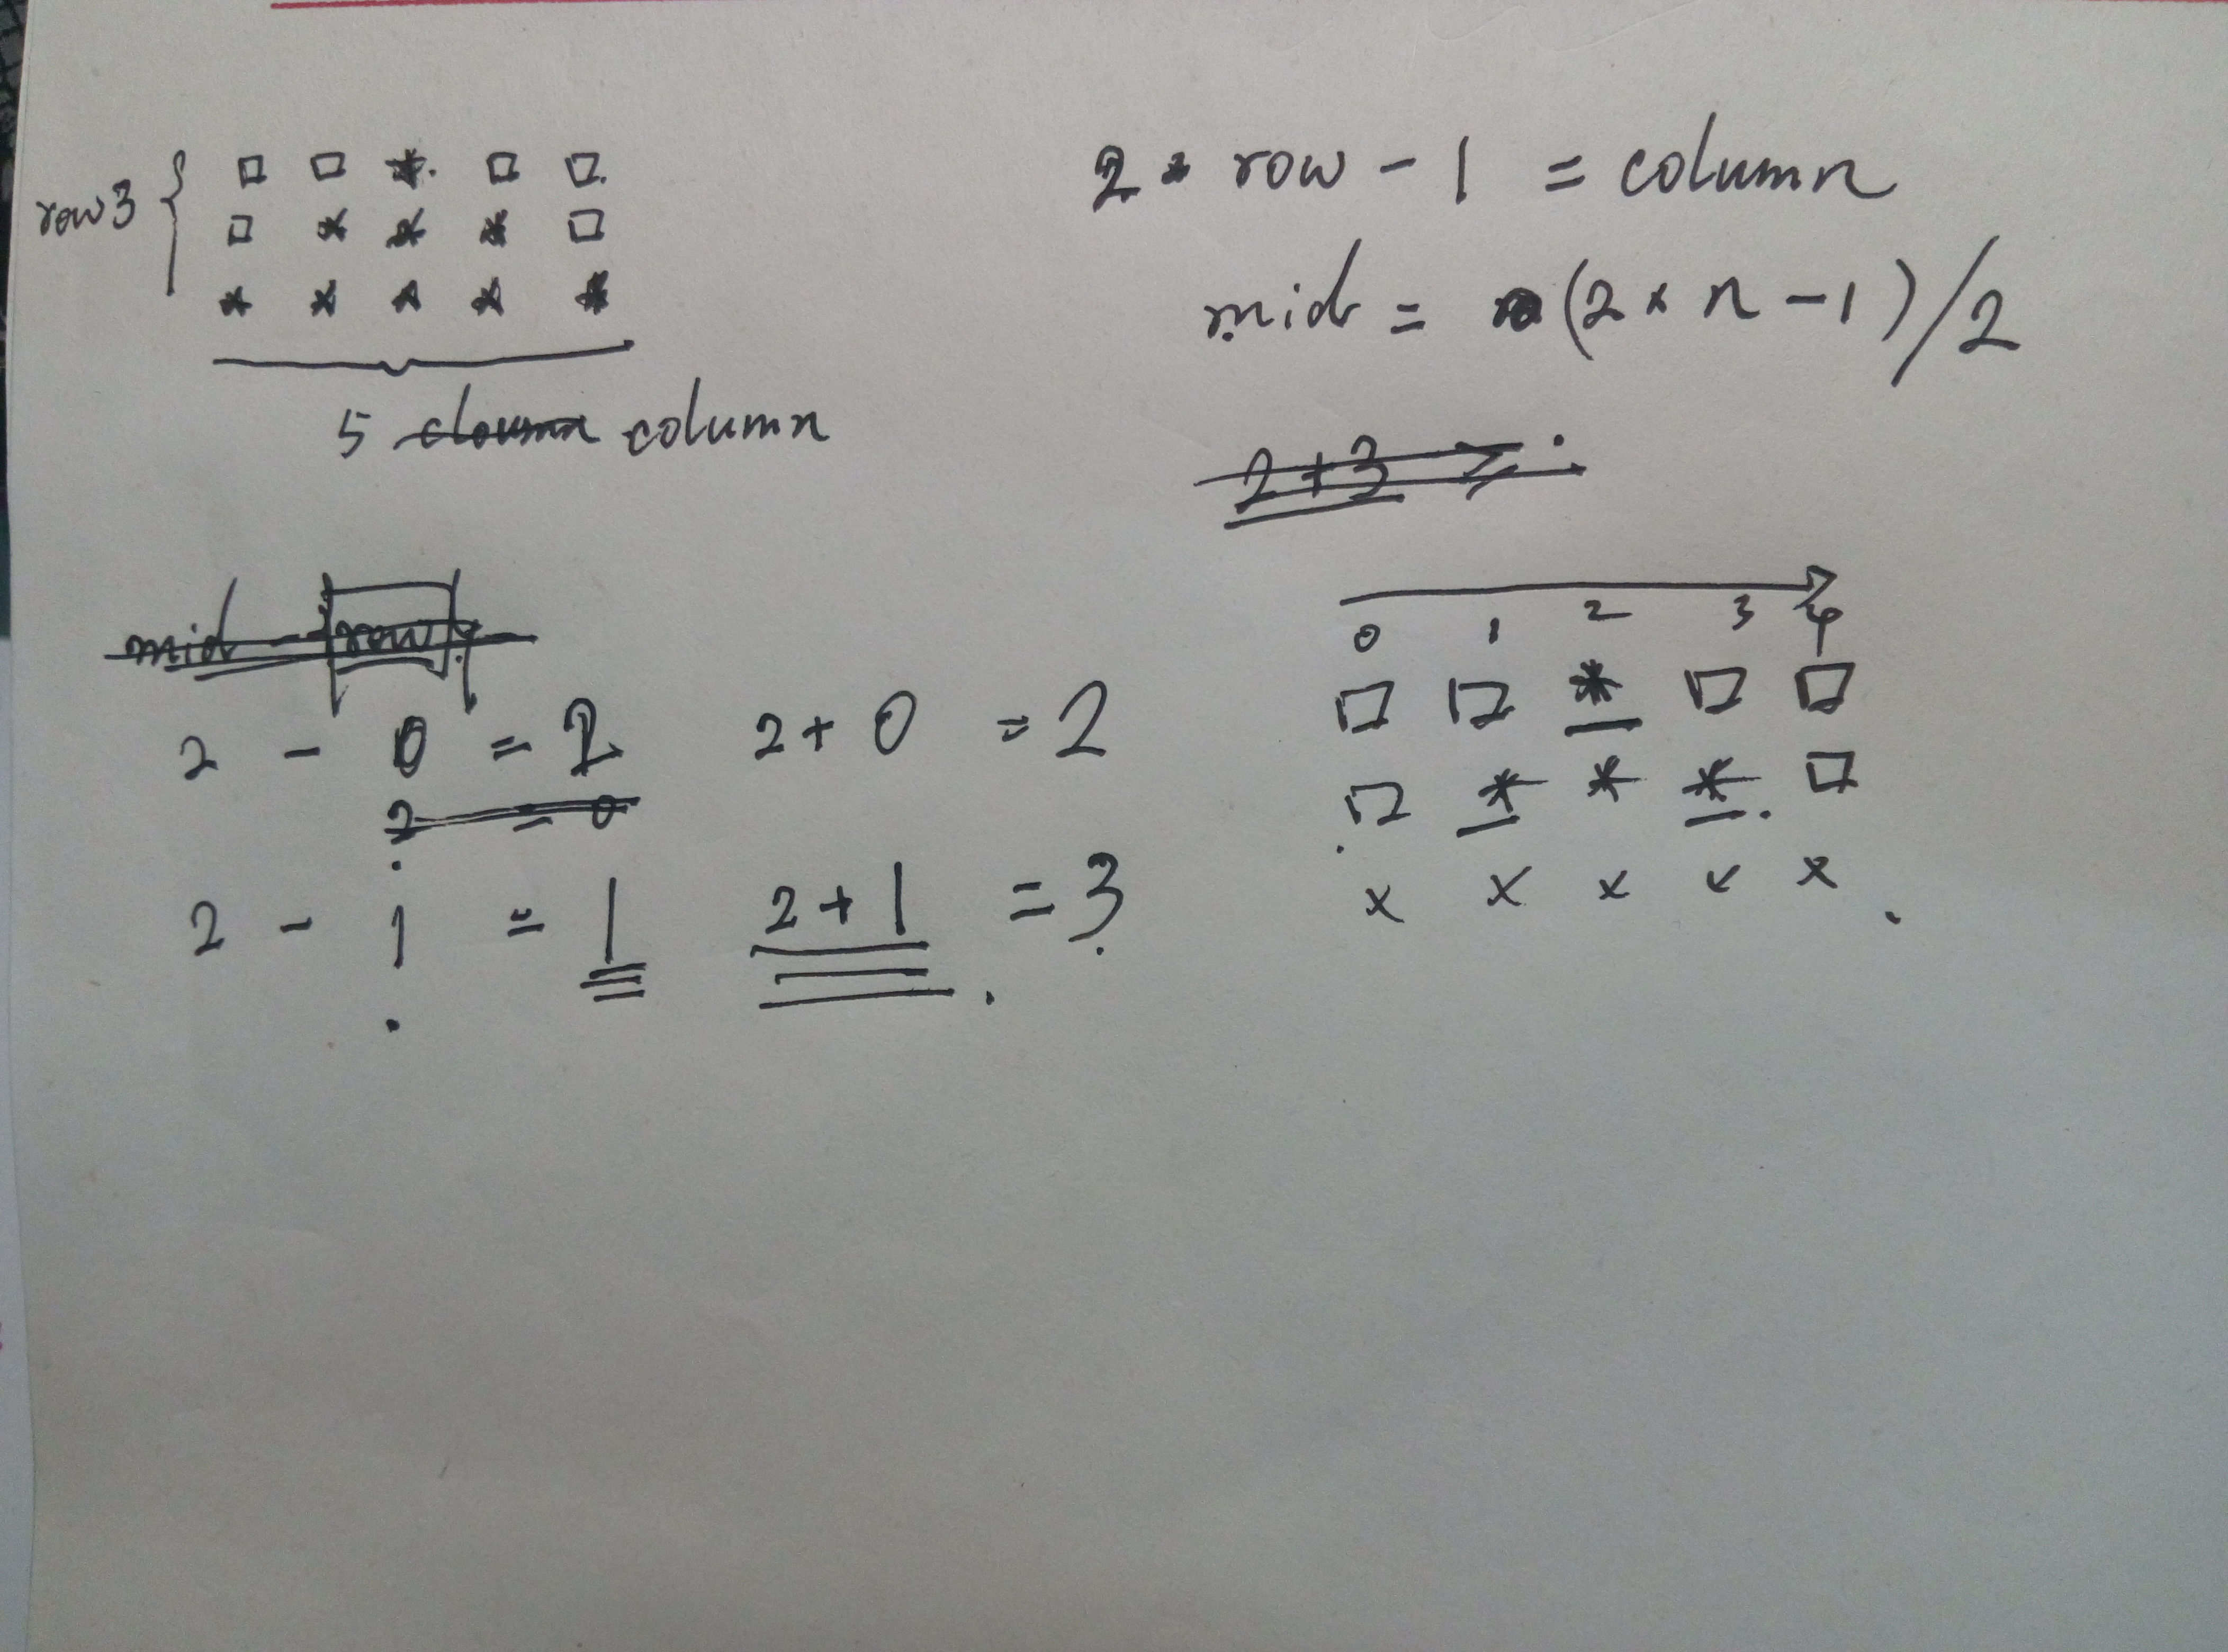 row 3
□ □ * □ □
□ * * * □
* * * * *
5 cloumn column
2 * row - 1 = column
mid = (2 * n - 1)/2
2+3
mid - row
2 - 0 = 2 2 + 0 = 2
2 = 0
2 - 1 = 1 2 + 1 = 3
0 1 2 3 4
□ □ * □ □
□ * * * □
x x x x x